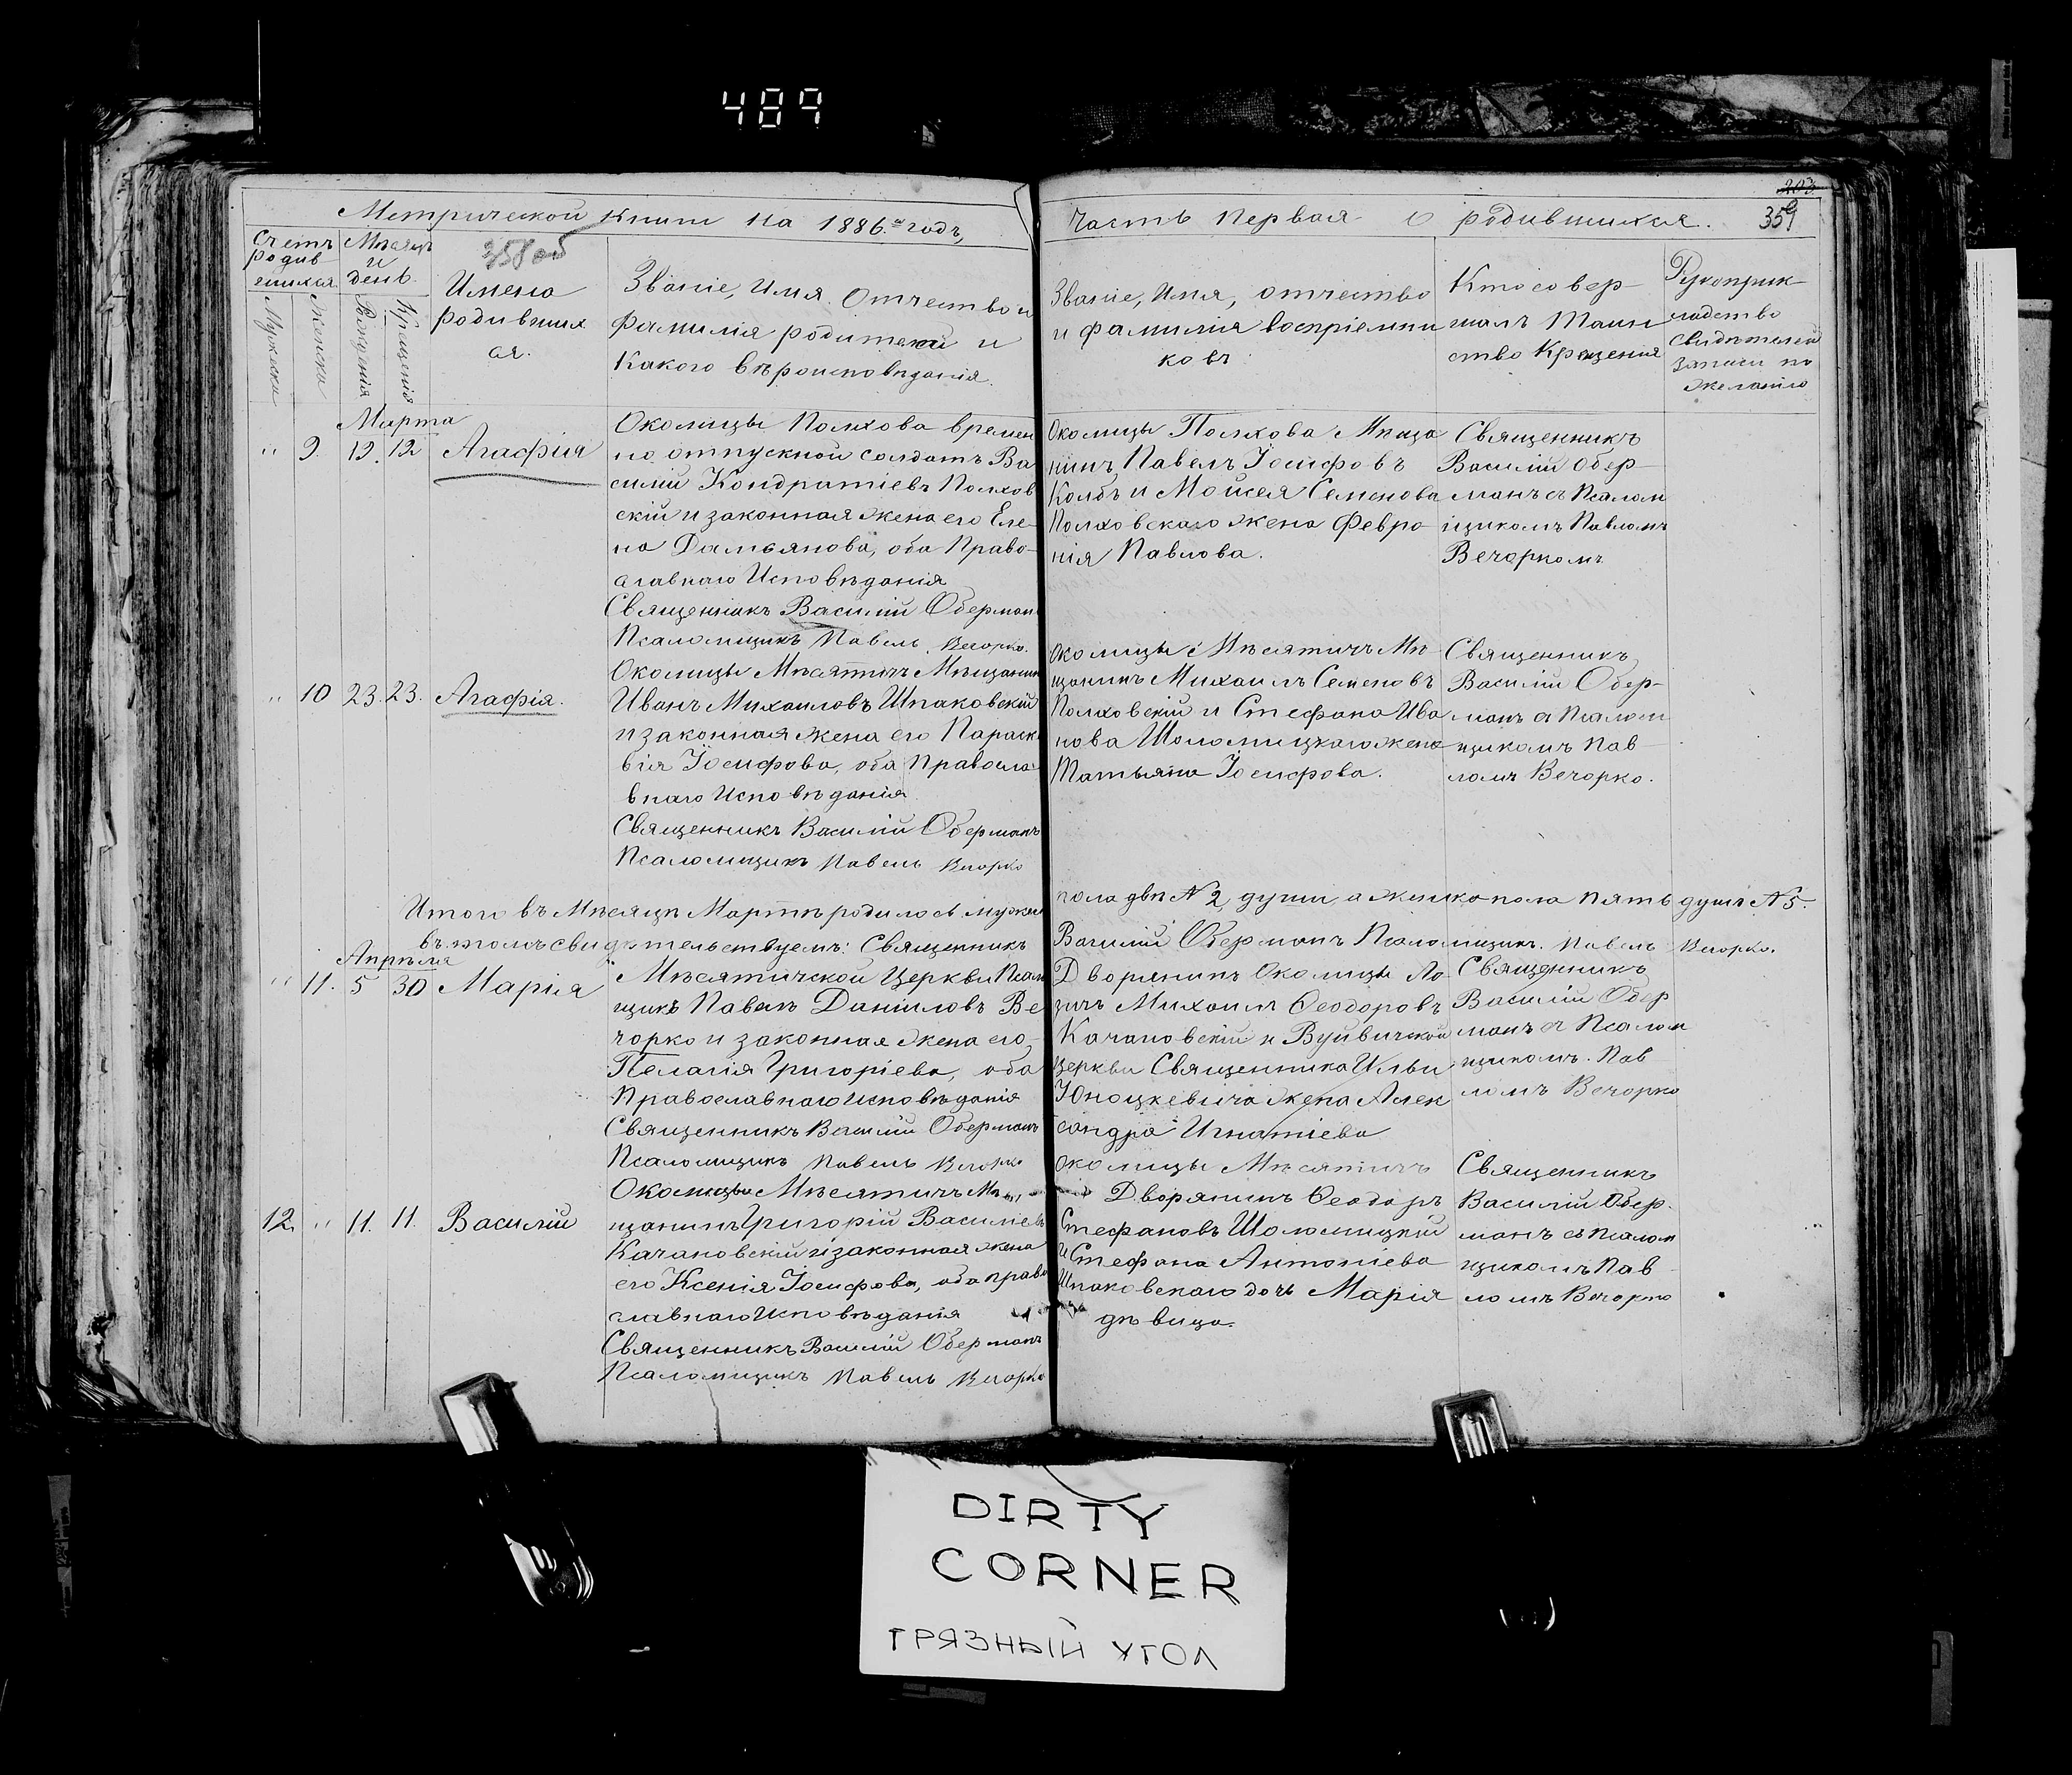 489
Метрической книги на 1886.й годъ,
Часть первая о родившихся.
203
359
Счетъ родив-шихся
Мѣсяцъ и день.
358 об
Имена родивших ся.
Званіе, Имя, Отчество и
фамилія родителей и
Какого вѣроисповѣданія.
Званіе, Имя, отчество
и фамилія воспріемни
ковъ
Кто совер-
шалъ Таин
ство Крещенія
Рукоприк-
ладство
свидѣтелей
записи по
желанію
Мужеска
Женска
Рожденія
Крещенія
Марта
" 9. 12. 12 Агафія
Околицы Полхова времен
но отпускной солдатъ Ва
силій Кондратіевъ Полхов
скій и законная жена его Еле-
на Дамьянова, оба Право-
славнаго Исповѣданія
Священникъ Василій Оберманъ
Псаломщикъ Павелъ Вечорко.
Околицы Полхова Мѣща
нинъ Павелъ Іосифовъ
Колбъ и Мойсея Семенова
Полховскаго жена Февро
нія Павлова.
Священникъ
Василій Обер-
манъ съ Псалом
щикомъ Павломъ
Вечоркомъ
" 10 23. 23. Агафія.
Околицы Мѣсятичъ Мѣщанинъ
Иванъ Михаиловъ Шпаковскій
и законная жена его Параск
вія Іосифова, оба Правосла
внаго Исповѣданія
Священникъ Василій Оберманъ
Псаломщикъ Павелъ Вечорко
Околицы Мѣсятичъ Мѣ
щанинъ Михаилъ Семеновъ
Полховскій и Стефана Ива
нова Шоломицкаго жена
Татьяна Іосифова.
Священникъ
Василій Обер-
манъ съ Псалом
щикомъ Пав
ломъ Вечорко.
Итого въ Мѣсяцѣ Мартѣ родилось мужск пола двѣ № 2 души а женска пола пять душъ № 5.
въ томъ свидѣтельствуемъ: Священникъ Василій Оберманъ Псаломщикъ. Павелъ Вечорко.
Апрѣля
" 11. 5 30 Марія
Мѣсятичской Церкви Псалом
щикъ Павелъ Даніиловъ Ве
чорко и законная жена его
Пелагія Григоріева, оба
Православнаго исповѣданія
Священникъ Василій Оберманъ
Псаломщикъ Павелъ Вечорко
Дворянинъ Околицы Ло-
зичъ Михаилъ Ѳеодоровъ
Качановскій и Вуйвичской
церкви Священника Ильи
Юноцкевіча жена Алек
сандра Игнатіева
Священникъ
Василій Обер
манъ съ Псалом
щикомъ. Пав
ломъ Вечорко
12. " 11. 11. Василій
Околицы Мѣсятичъ Мѣ
щанинъ Григорій Василіевъ
Качановскій и законная жена
его Ксенія Іосифова, оба право
славнаго Исповѣданія
Священникъ Василій Оберманъ
Псаломщикъ Павелъ Вечорко
околицы Мѣсятичъ
Дворянинъ Ѳеодоръ
Стефановъ Шоломицкій
и Стефана Антоніева
Шпаковскаго дочь Марія
дѣвица.
Священникъ
Василій Обер.
манъ съ Псалом
щикомъ Пав
ломъ Вечорко
DIRTY
CORNER
ГРЯЗНЫЙ УГОЛ